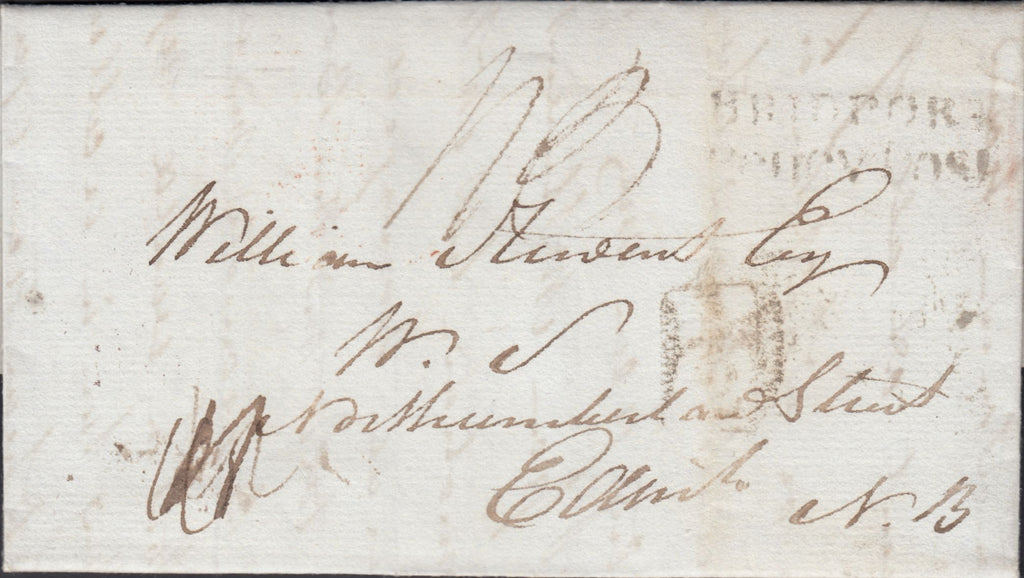 BRIDPORT
PENNY POST
William Stewart Esq
W. S
Northumberland Street
Edinb.
N. B